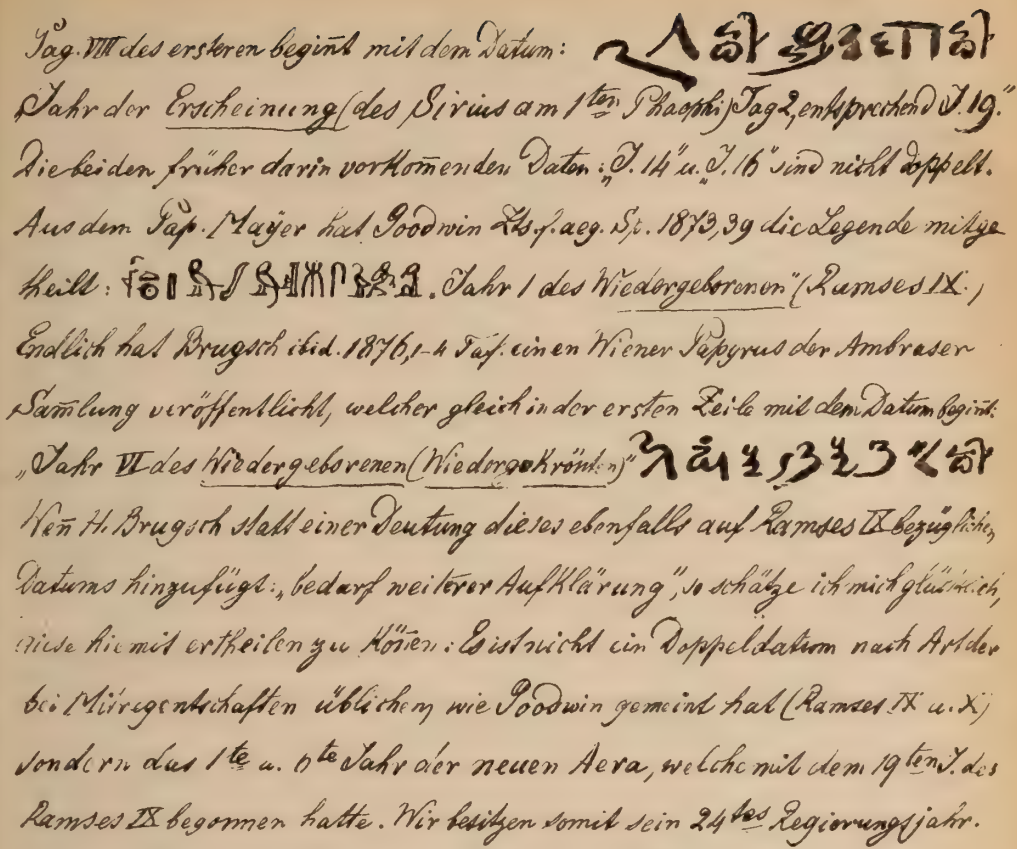 Pag. VIII des ersteren begin̄t mit dem Datum:
„Jahr der Erscheinung (des Sirius am 1ten Phaophi) Tag 2, entsprechend J. 19.“
Die beiden früher darin vorkom̄enden Daten: „J. 14“ u. „J. 16“ sind nicht doppelt.
Aus dem Pap. Mayer hat Goodwin Zts. f. aeg. Sp. 1873, 39 die Legende mitge
theilt: . Jahr 1 des Wiedergeborenen“ (Ramses IX.)
Endlich hat Brugsch ibid. 1876, 1-4 Taf. einen Wiener Papyrus der Ambraser
Sam̄lung veröffentlicht, welcher gleich in der ersten Zeile mit dem Datum begin̄t:
„Jahr VI des Wiedergeborenen (Wiedergekrönten)“
Wen̄ H. Brugsch statt einer Deutung dieses ebenfalls auf Ramses IX bezüglichen
Datums hinzufügt: „bedarf weiterer Aufklärung“, so schätze ich mich glücklich,
diese hiemit ertheilen zu kön̄en: Es ist nicht ein Doppeldatum nach Art der
bei Mitregentschaften üblichen, wie Goodwin gemeint hat (Ramses IX u. X)
sondern das 1te u. 6te Jahr der neuen Aera, welche mit dem 19ten J. des
Ramses IX begonnen hatte. Wir besitzen somit sein 24tes Regierungsjahr.